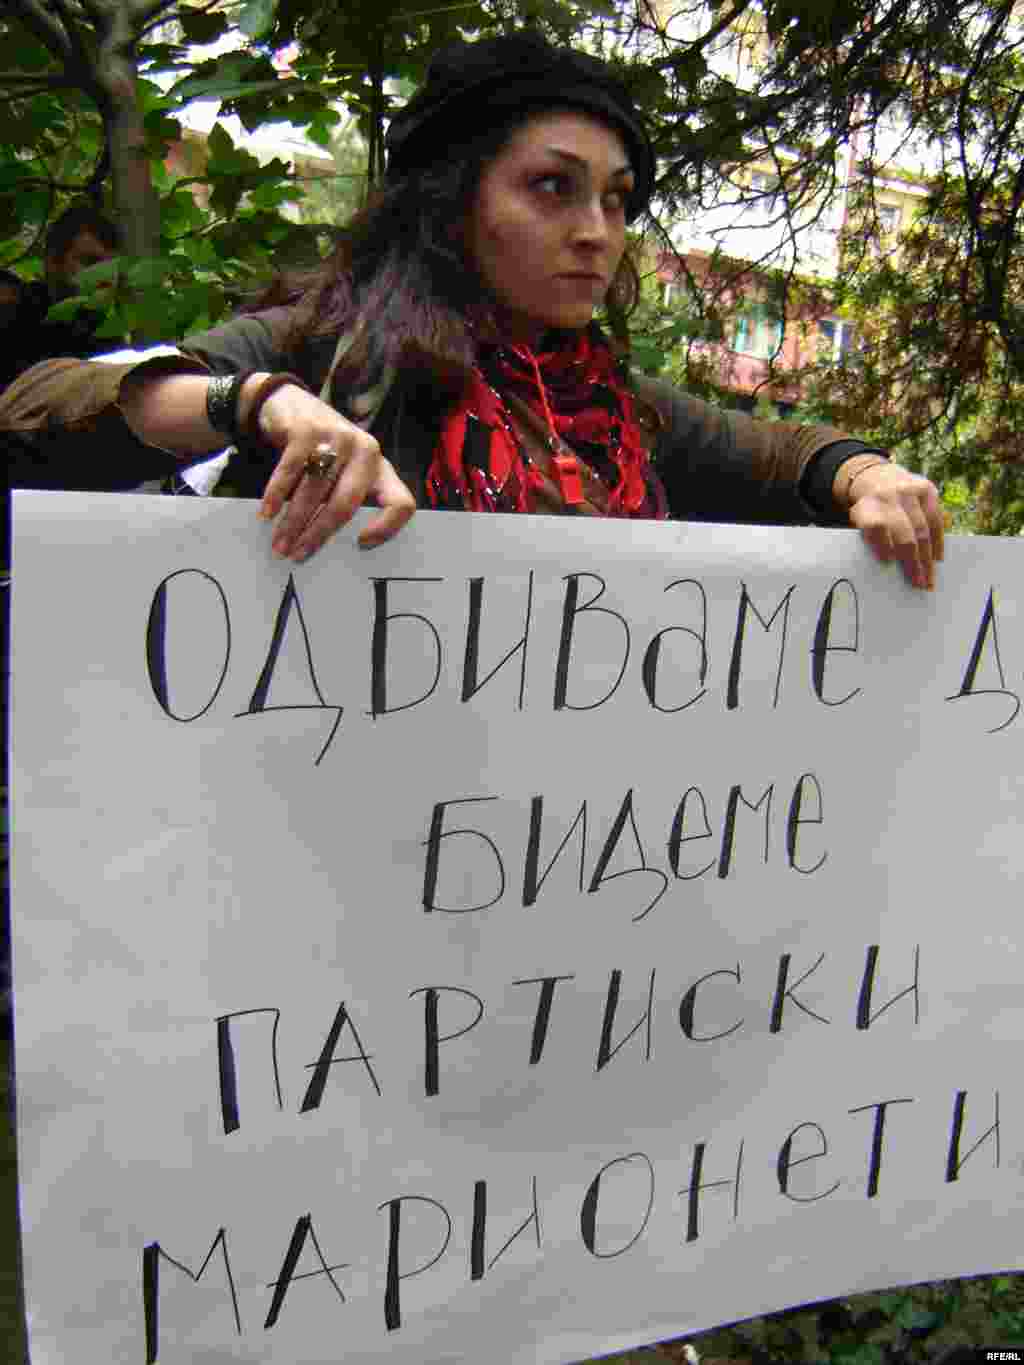 ОДБИВАМЕ Д
БИДЕМЕ
ПАРТИСКИ
МАРИОНЕТИ
RFE/RL